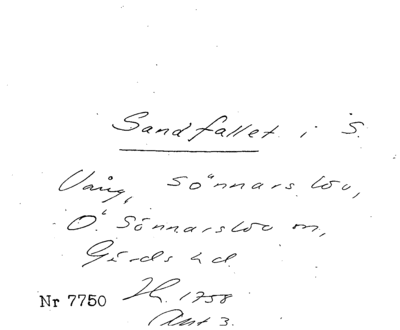 Sandfallet i S.
Vång, Sönnarslöv,
Ö. Sönnarslöv sn,
Gärds hd
Nr 7750 Lh. 1758
Akt 3.